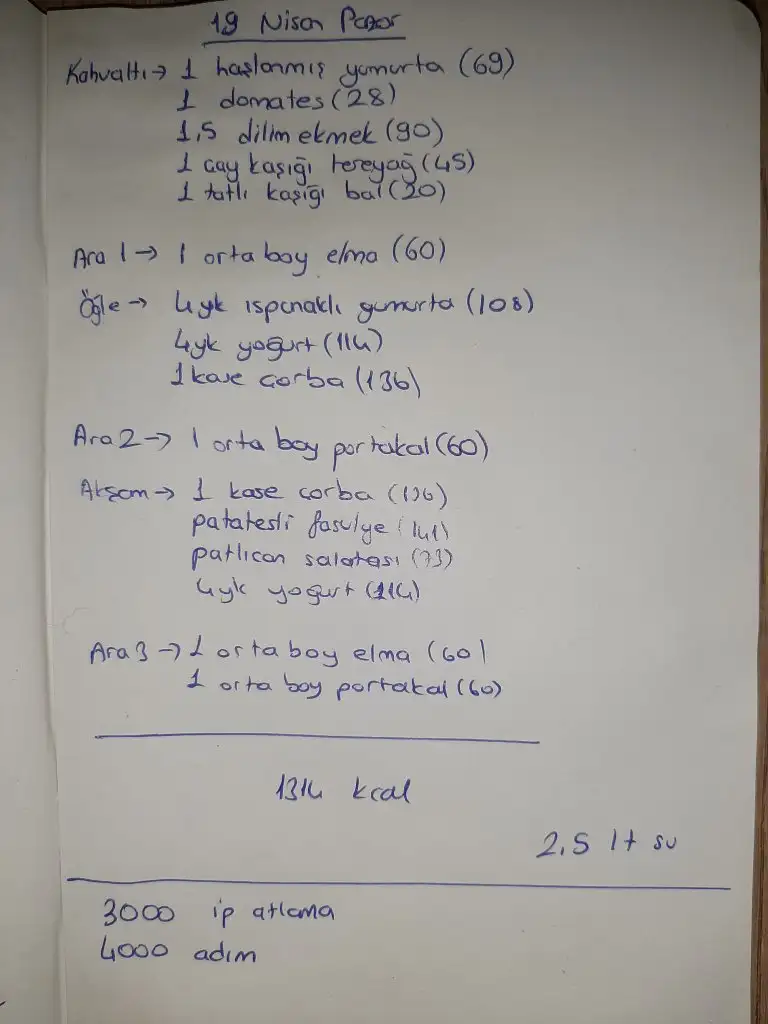 19 Nisan Pazar
Kahvaltı → 1 haşlanmış yumurta (69)
1 domates (28)
1,5 dilim ekmek (90)
1 çay kaşığı tereyağ (45)
1 tatlı kaşığı bal (20)
Ara 1 → 1 orta boy elma (60)
Öğle → 4yk ıspanaklı yumurta (108)
4yk yoğurt (114)
1 kase çorba (136)
Ara 2 → 1 orta boy portakal (60)
Akşam → 1 kase çorba (136)
patatesli fasulye (141)
patlıcan salatası (73)
4yk yoğurt (114)
Ara 3 → 1 orta boy elma (60)
1 orta boy portakal (60)
1314 kcal
2,5 lt su
3000 ip atlama
4000 adım